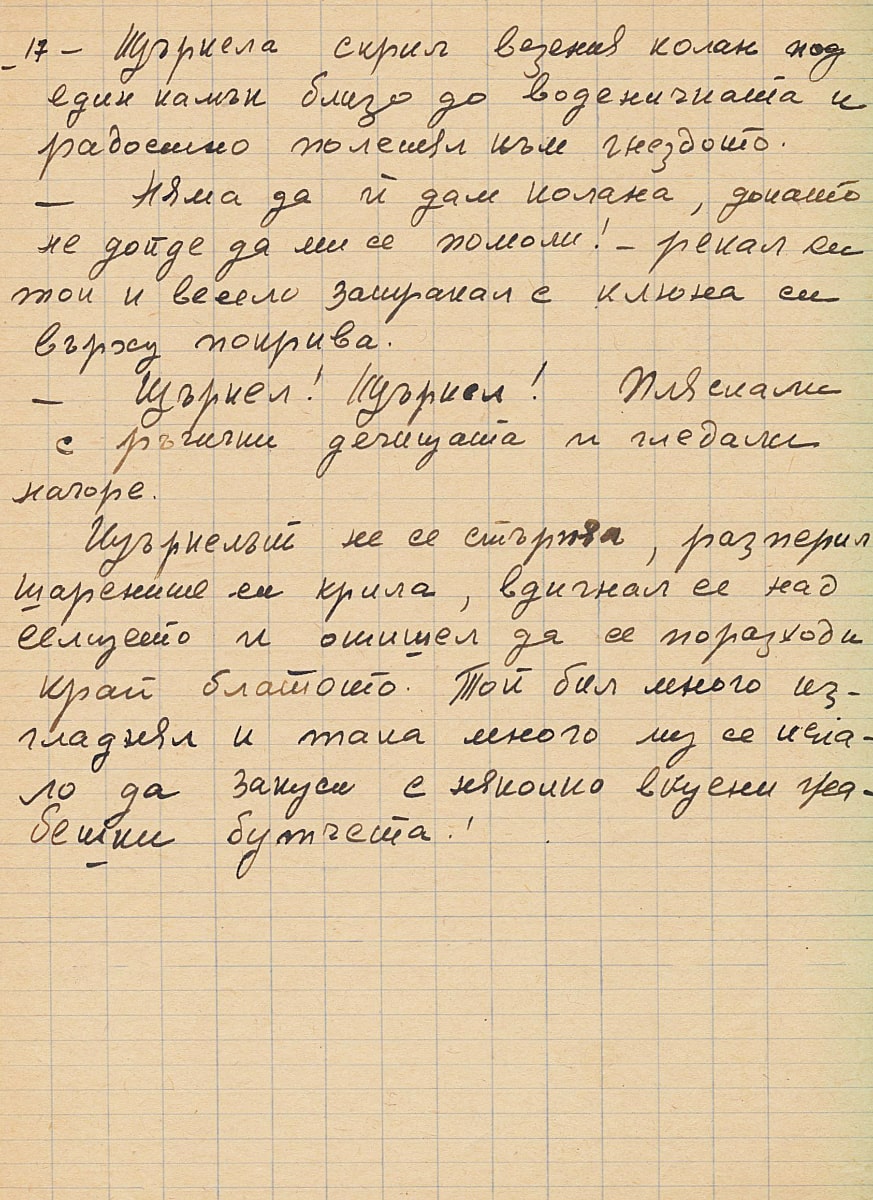 - 17 - Щъркела скрил везения колан под
един камък близо до воденичката и
радостно полетял към гнездото.
— Няма да ѝ дам колана, докато
не дойде да ми се помоли! - рекал си
той и весело затракал с клюна си
върху покрива.
— Щъркел! Щъркел! Пляскали
с ръчички дечицата и гледали
нагоре.
Щъркелът не се стърпял, разперил
шарените си крила, вдигнал се над
селцето и отишел да се поразходи
край блатото. Той бил много из-
гладнял и така много му се иска-
ло да закуси с няколко вкусни жа-
бешки бутчета!